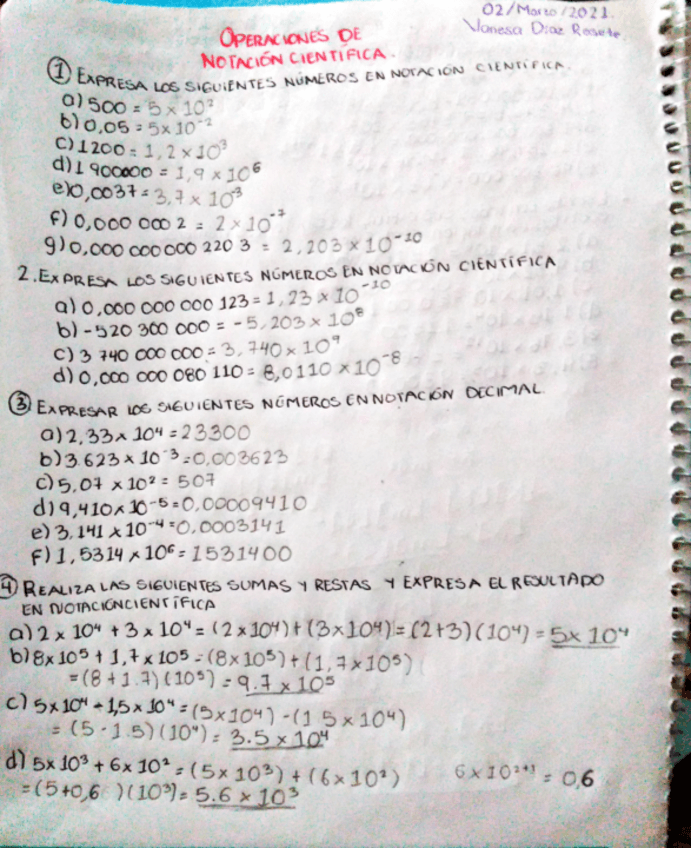 02/Marzo/2021.
Vanesa Díaz
OPERACIONES DE
NOTACIÓN CIENTÍFICA.
① EXPRESA LOS SIGUIENTES NÚMEROS EN NOTACIÓN CIENTÍFICA.
a) 500 = 5 x 10²
b) 0,05 = 5x10⁻²
c) 1200 = 1,2 x 10³
d) 1 900000 = 1,9 x 10⁶
e) 0,0037 = 3,7 x 10⁻³
f) 0,000 000 2 = 2 x 10⁻⁷
g) 0,000 000 000 220 3 = 2,203 x 10⁻¹⁰
2. EXPRESA LOS SIGUIENTES NÚMEROS EN NOTACIÓN CIENTÍFICA
a) 0,000 000 000 123 = 1,23 x 10⁻¹⁰
b) -520 300 000 = -5,203 x 10⁸
c) 3 740 000 000 = 3,740 x 10⁹
d) 0,000 000 080 110 = 8,0110 x 10⁻⁸
③ EXPRESAR LOS SIGUIENTES NÚMEROS EN NOTACIÓN DECIMAL.
a) 2,33 x 10⁴ = 23300
b) 3.623 x 10⁻³ = 0,003623
c) 5,07 x 10² = 507
d) 9,410 x 10⁻⁵ = 0,00009410
e) 3,141 x 10⁻⁴ = 0,0003141
f) 1,5314 x 10⁶ = 1531400
④ REALIZA LAS SIGUIENTES SUMAS Y RESTAS Y EXPRESA EL RESULTADO
EN NOTACIONCIENTÍFICA
a) 2 x 10⁴ + 3 x 10⁴ = (2x10⁴) + (3x10⁴) = (2+3)(10⁴) = 5x10⁴
b) 8x10⁵ + 1,7 x 10⁵ = (8x10⁵) + (1,7x10⁵)
= (8+1.7)(10⁵) = 9.7 x 10⁵
c) 5x10⁴ - 1,5x10⁴ = (5x10⁴) - (1 5x10⁴)
= (5-1.5)(10⁴) = 3.5 x 10⁴
d) 5x10³ + 6x10² = (5x10³) + (6x10²) 6x10²⁺¹ = 0,6
= (5+0,6 )(10³) = 5.6 x 10³